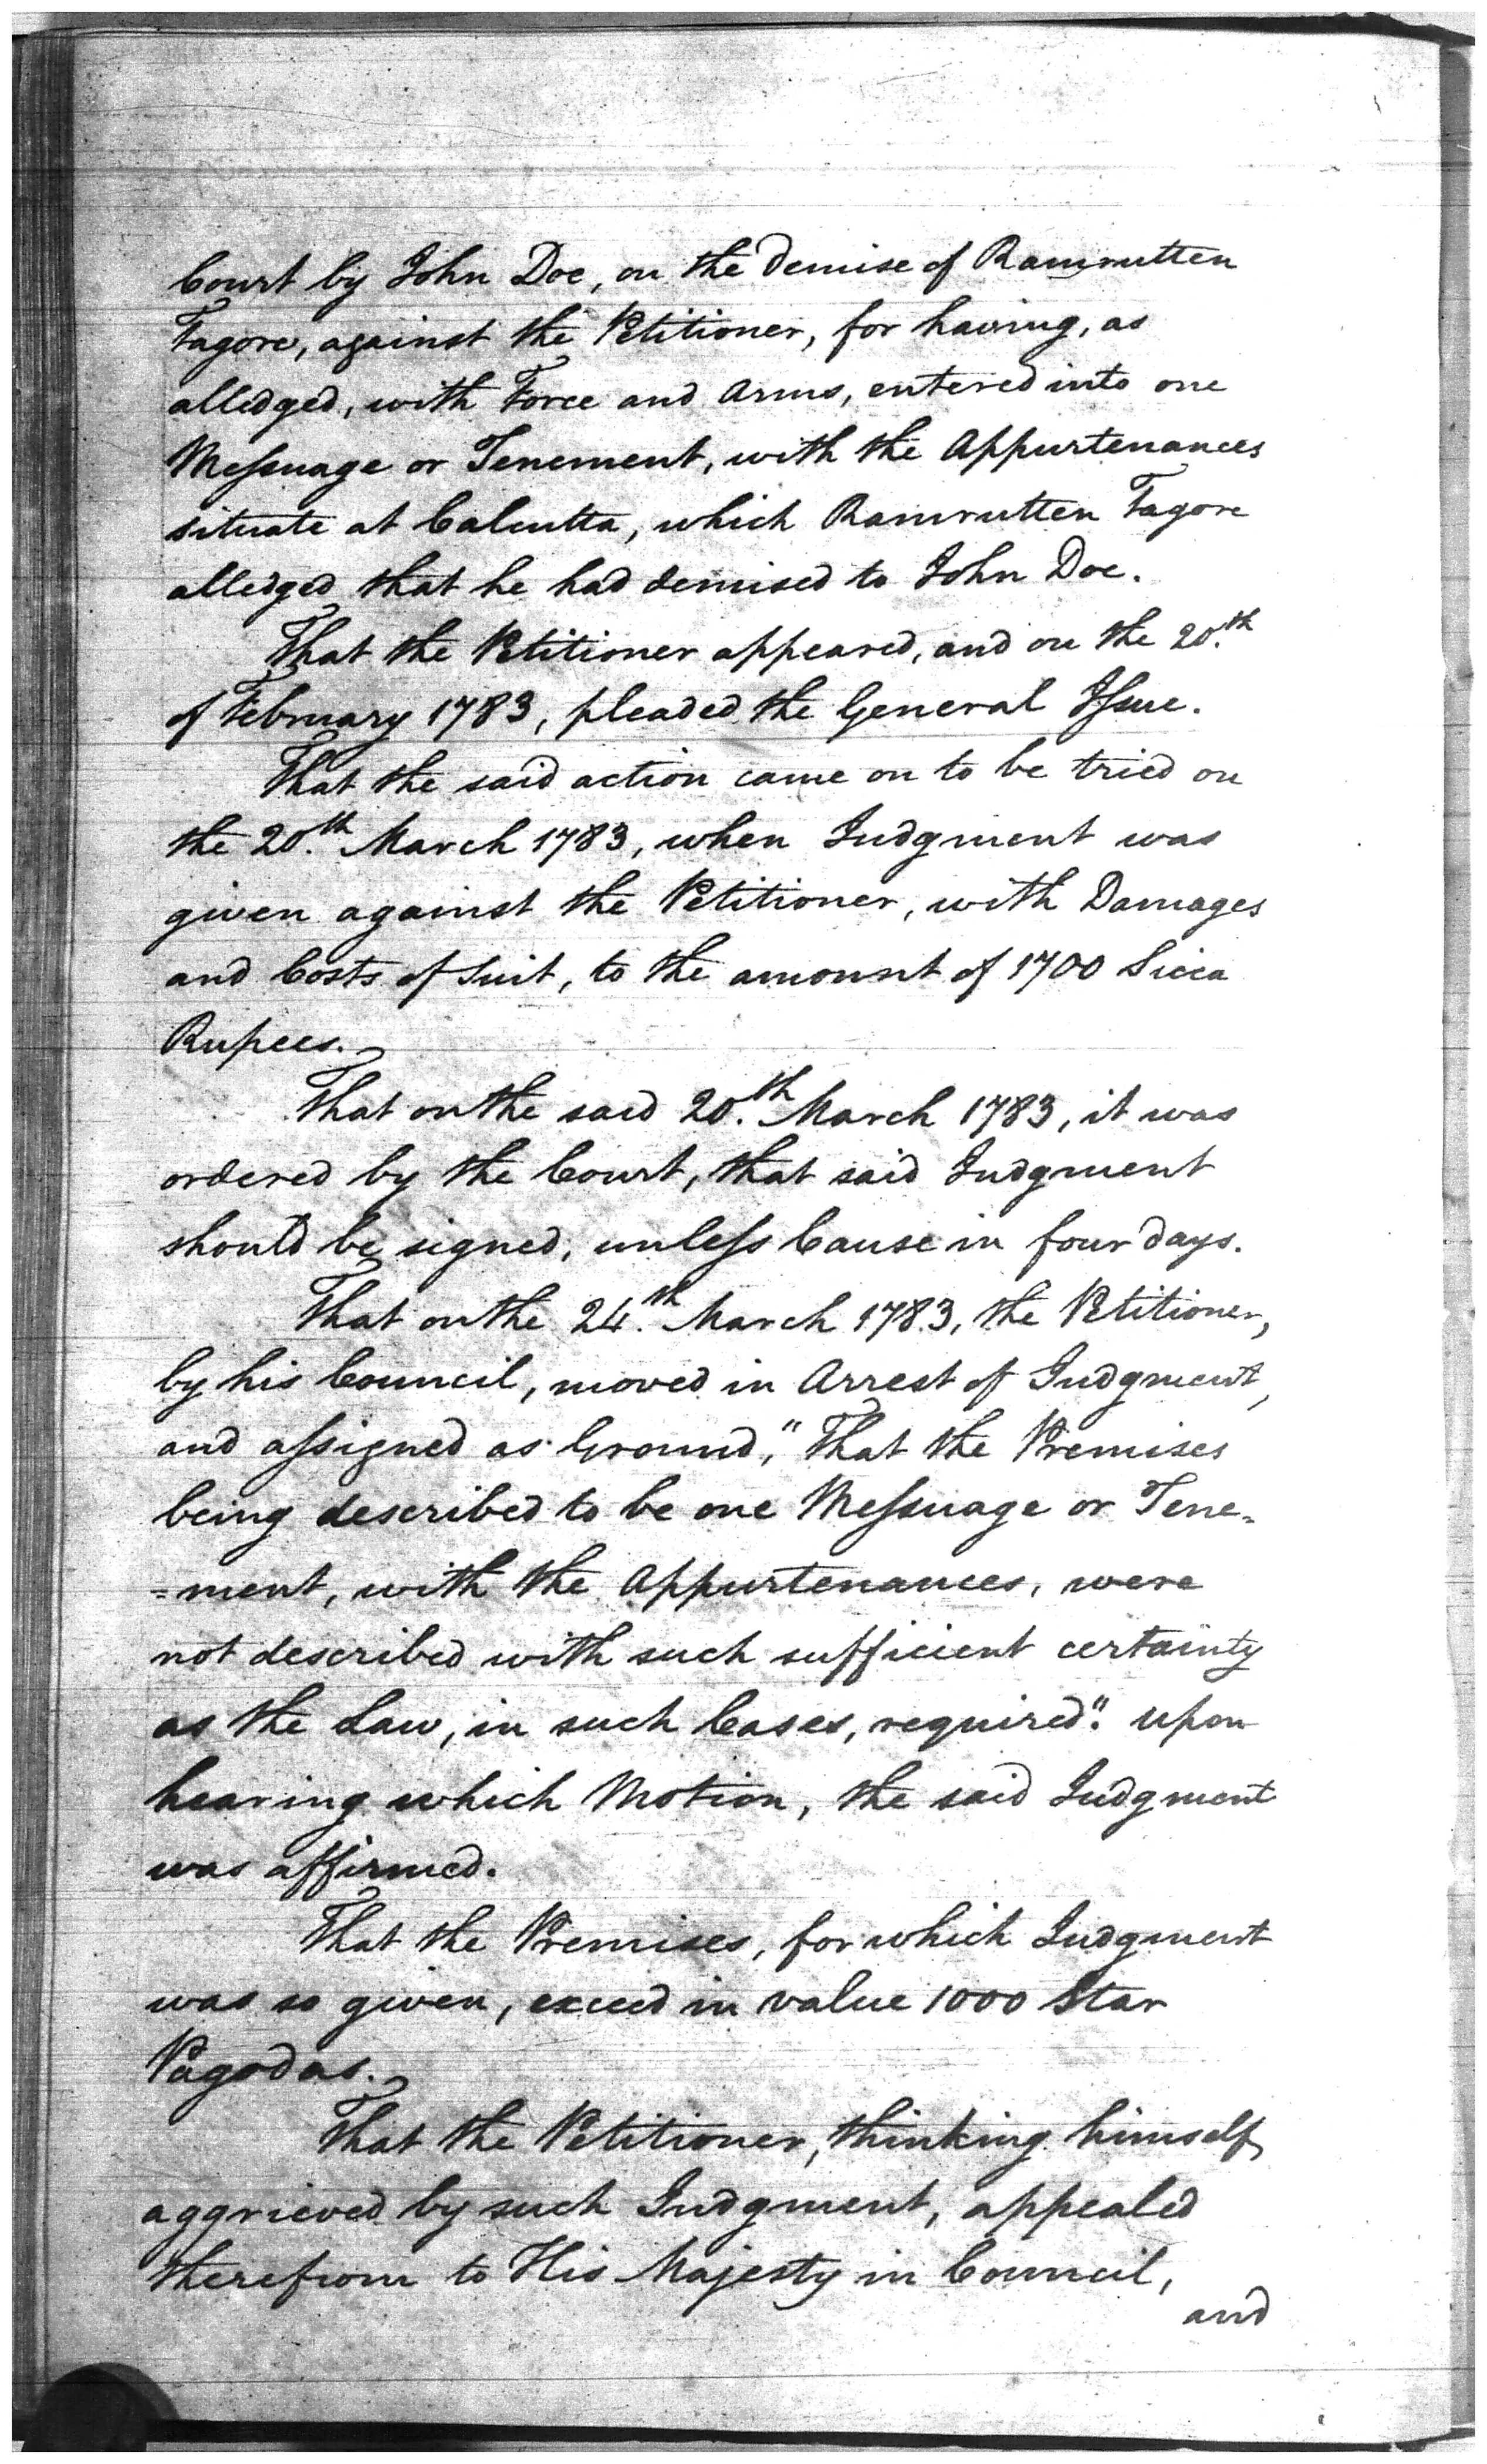 Court by John Doe, on the demise of Ramrutten
Tagore, against the Petitioner, for having, as
alledged, with Force and Arms, entered into one
Meſsuage or Tenement, with the Appurtenances
situate at Calcutta, which Ramrutten Tagore
alledged that he had demised to John Doe.
That the Petitioner appeared, and on the 20.th
of February 1783, pleaded the General Iſsue.
That the said action came on to be tried on
the 20.th March 1783, when Judgment was
given against the Petitioner, with Damages
and Costs of Suit, to the amount of 1700 Sicca
Rupees.
That on the said 20.th March 1783, it was
ordered by the Court, that said Judgment
should be signed, unleſs Cause in four days.
That on the 24.th March 1783, the Petitioner,
by his Council, moved in Arrest of Judgment,
and aſsigned as Ground, "That the Premises
being described to be one Meſsuage or Tene=
=ment, with the Appurtenances, were
not described with such sufficient certainty
as the Law, in such Cases, required". Upon
hearing which Motion, the said Judgment
was affirmed.
That the Premises, for which Judgment
was so given, exceed in value 1000 Star
Pagodas.
That the Petitioner, thinking himself
aggrieved by such Judgment, appealed
therefrom to His Majesty in Council,
and